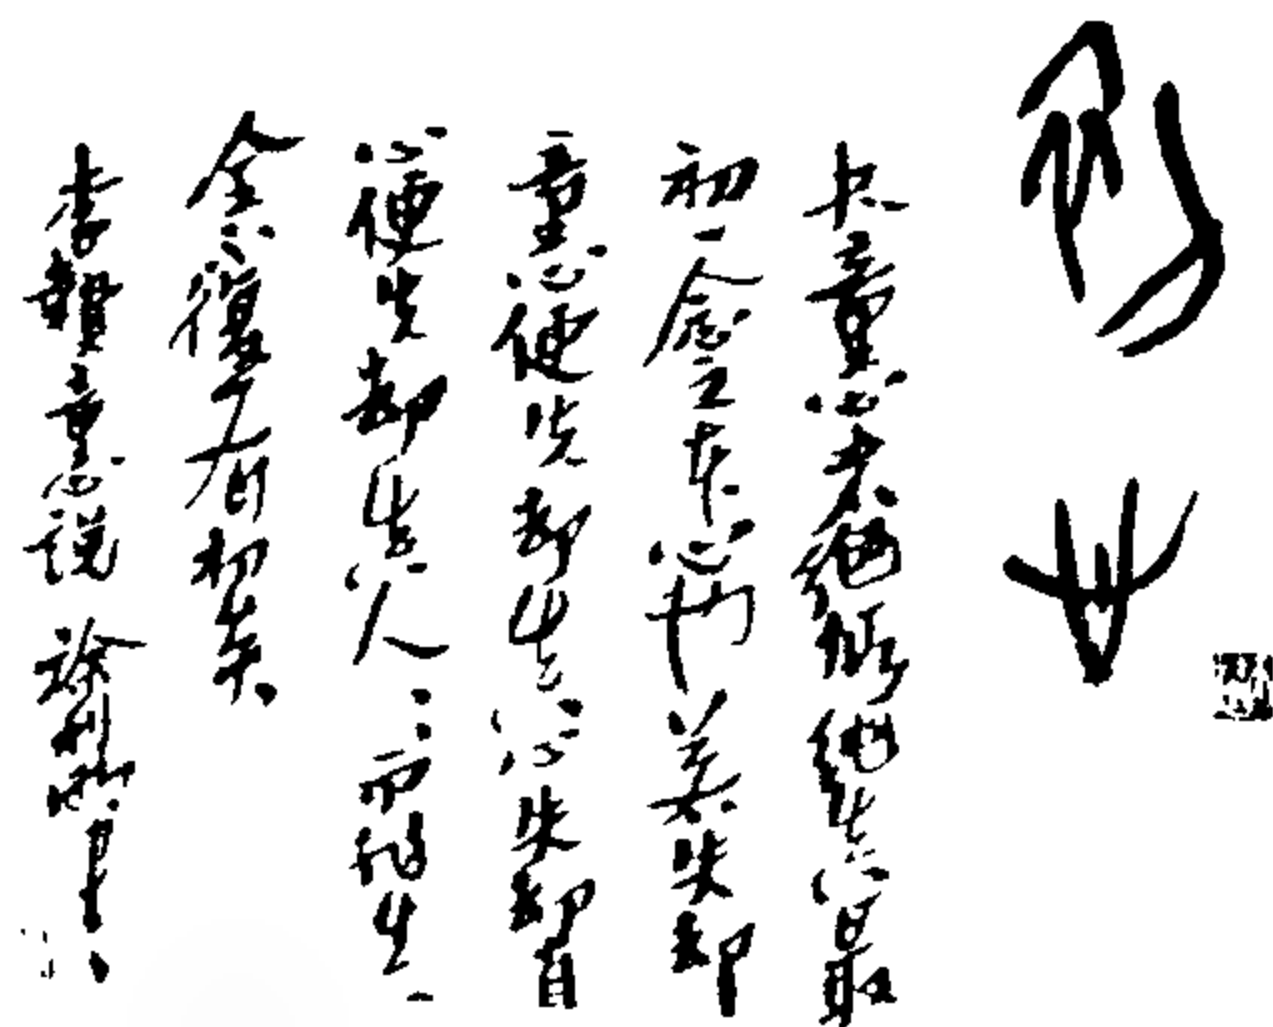 初心
夫童心者絕假純真最
初一念之本心也若失却
童心便失却真心失却真
心便失却真人〻而非真
全不復有初矣
李贄童心說 徐利明书